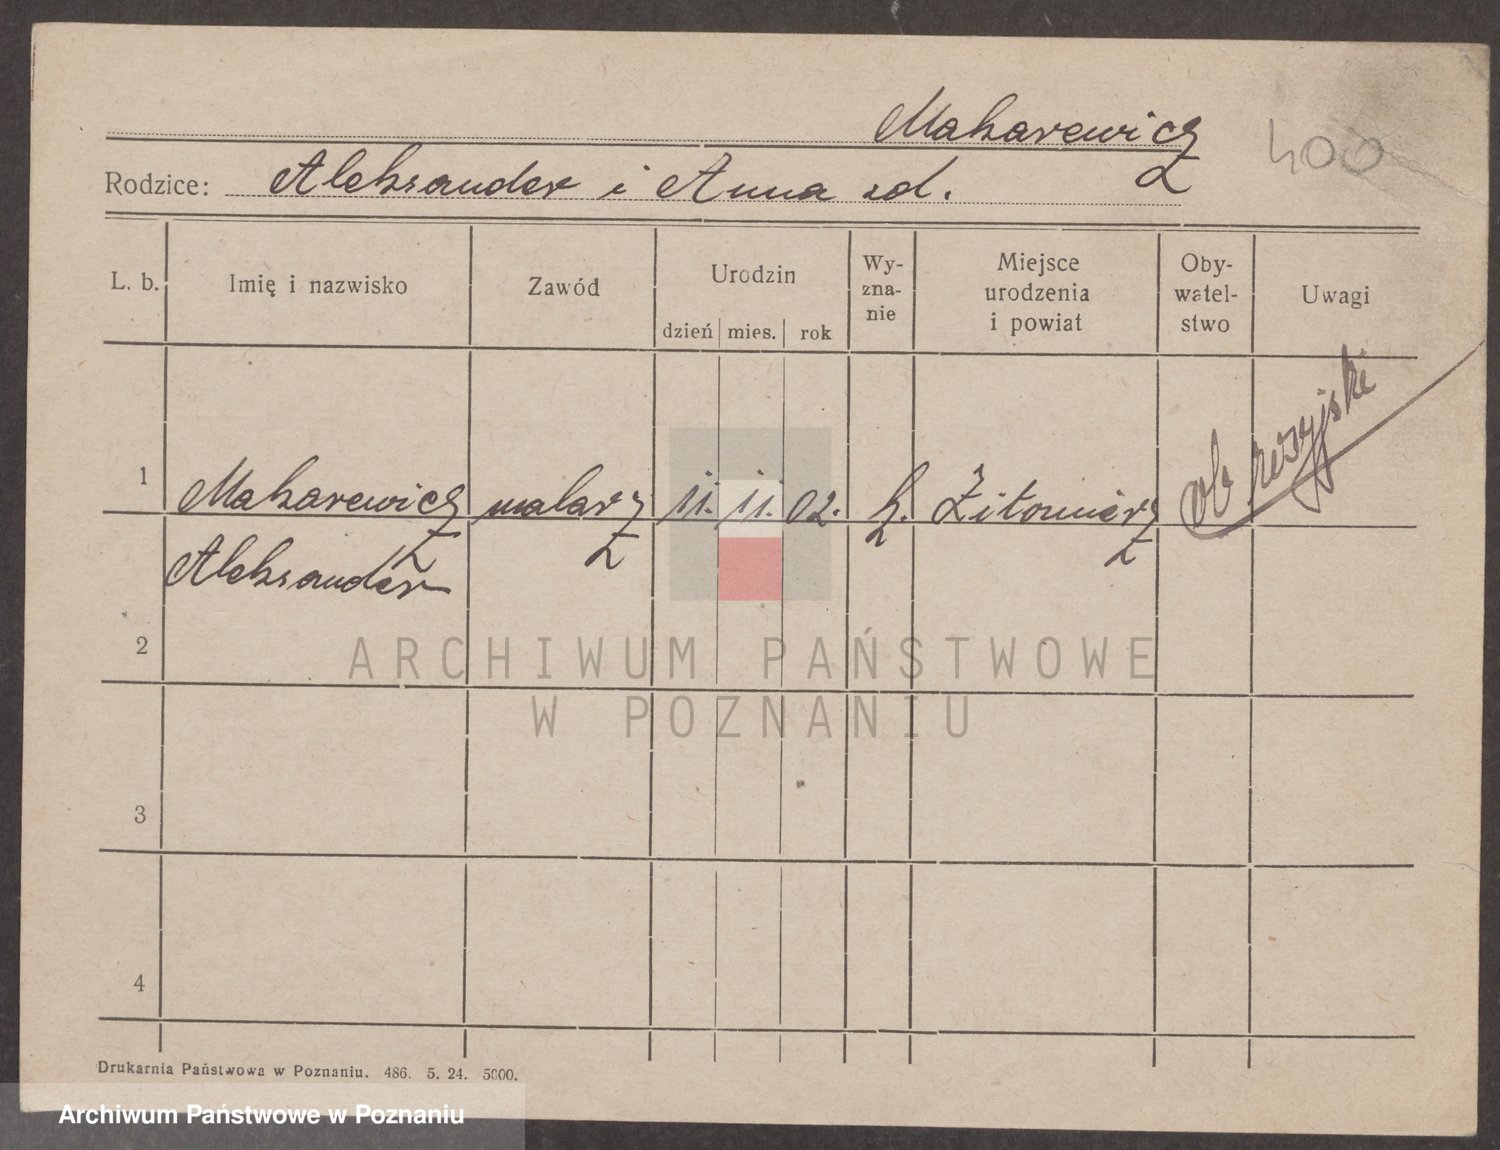 Makarewicz
400
Rodzice: Aleksander i Anna zd.
L. b. Imię i nazwisko Zawód Urodzin dzień mies. rok Wy-zna-nie Miejsce urodzenia i powiat Oby-watel-stwo Uwagi
1 Makarewicz malarz 11. 11. 02. Żitomierz ob rosyjski
Aleksander
2
ARCHIWUM PAŃSTWOWE
W POZNANIU
3
4
Drukarnia Państwowa w Poznaniu. 486. 5. 24. 5000.
Archiwum Państwowe w Poznaniu